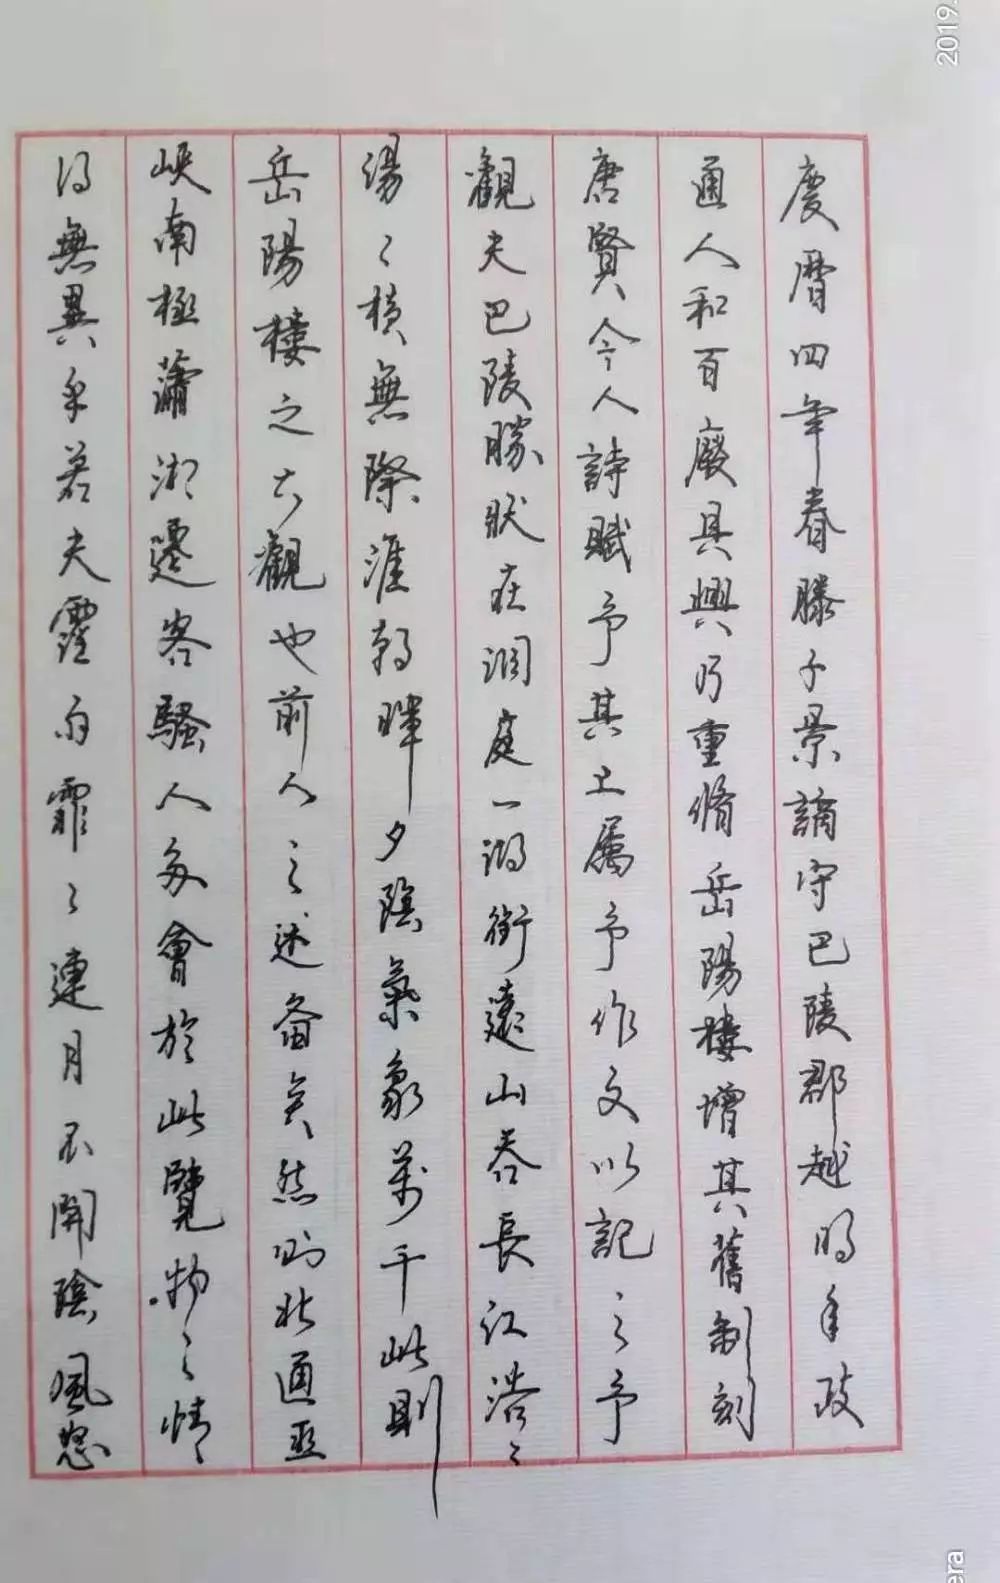 慶曆四年春滕子景謫守巴陵郡越明年政
通人和百廢具興乃重脩岳陽樓增其舊制刻
唐賢今人詩賦予其上屬予作文以記之予
觀夫巴陵勝狀在洞庭一湖銜遠山吞長江浩〻
湯〻橫無際涯朝暉夕陰氣象萬千此則
岳陽樓之大觀也前人之述备矣然則北通巫
峽南極瀟湘遷客騷人多會於此覽物之情
得無異乎若夫霪雨霏〻連月不開陰風怒
2019.
era